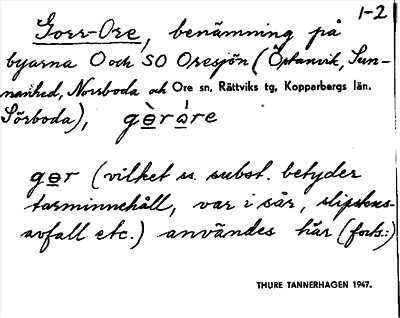 1-2
Gorr-Ore, benämning på
byarna O och SO Oresjön (Östanvik, Sun-
nanhed, Norrboda och Ore sn, Rättviks tg, Kopparbergs län.
Sörboda),
gor (vilket ss. subst. betyder
tarminnehåll, var i sår, slipstens-
avfall etc.) användes här (forts.)
THURE TANNERHAGEN 1947.